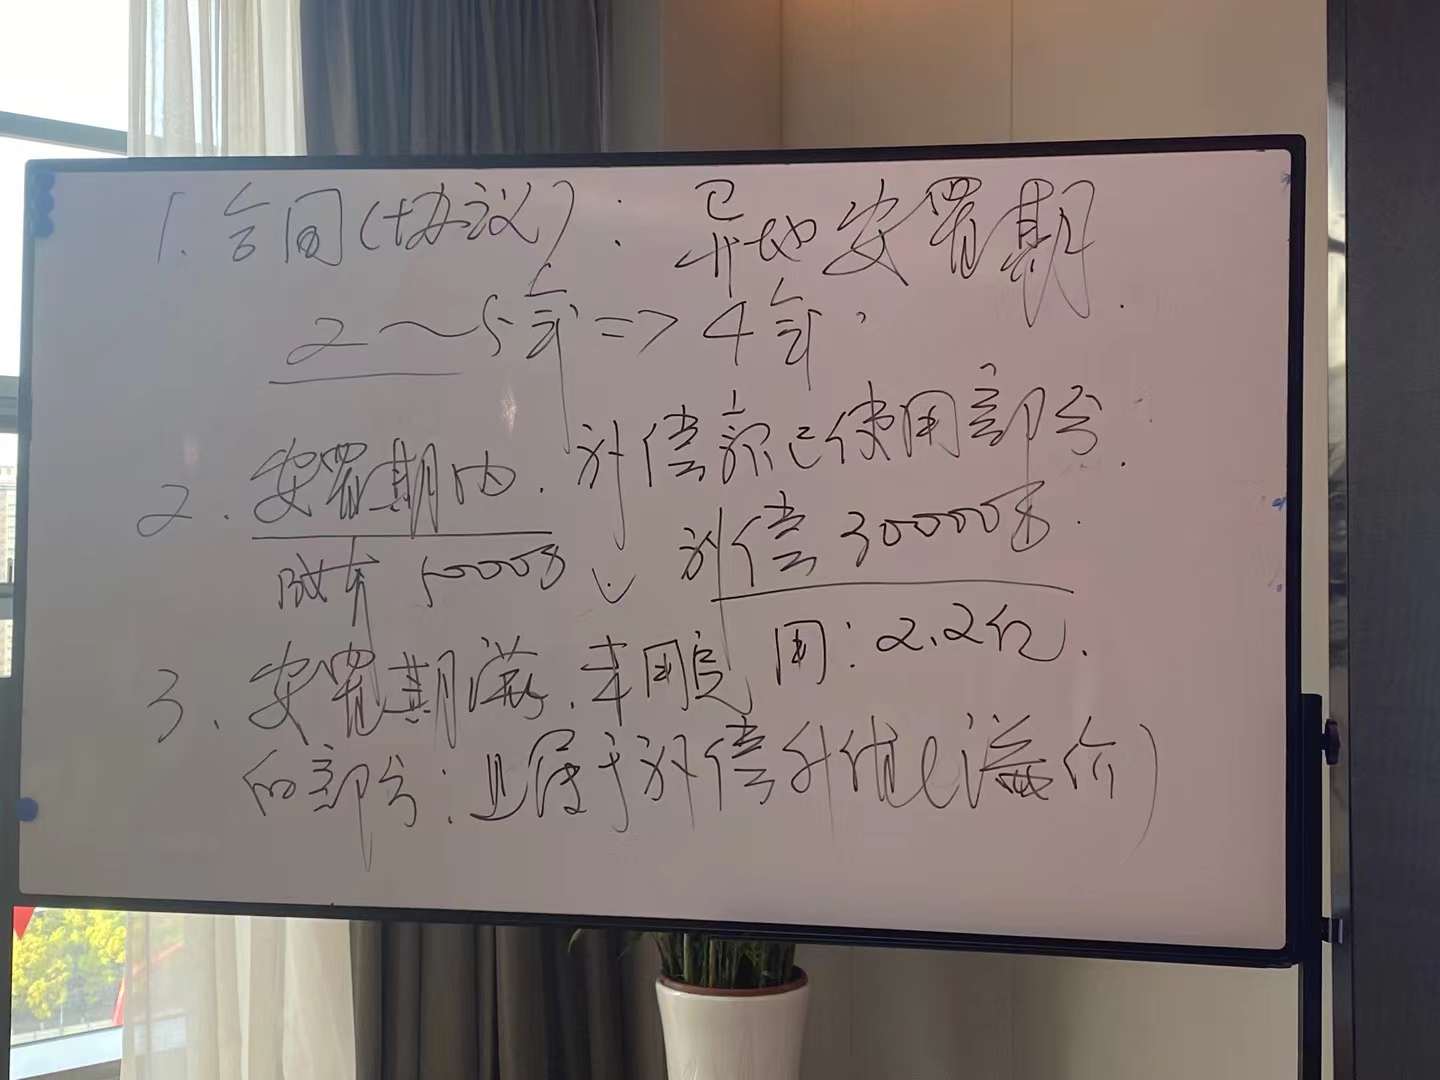 1. 合同(协议): 异地安置期.
2～5年 => 4年.
2. 安置期内. 补偿额已使用部分.
成本 50000多 补偿 30000多.
用: 2.2亿.
3. 安置期满. 未用完
的部分: 属于补偿 (溢价)